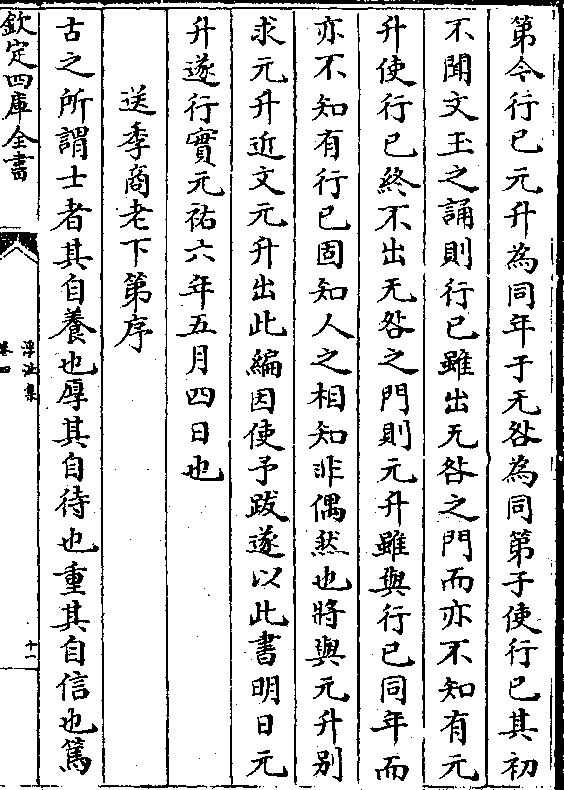 第令行已元升為同年于无咎為同第子使行已其初
不聞文玉之誦則行已雖出无咎之門而亦不知有元
升使行已終不出无咎之門則元升雖與行已同年而
亦不知有行已固知人之相知非偶然也將與元升别
求元升近文元升出此編因使予跋遂以此書明日元
升遂行實元祐六年五月四日也
送季商老下第序
古之所謂士者其自養也厚其自待也重其自信也篤
欽定四庫全書
浮沚集
卷四
十一